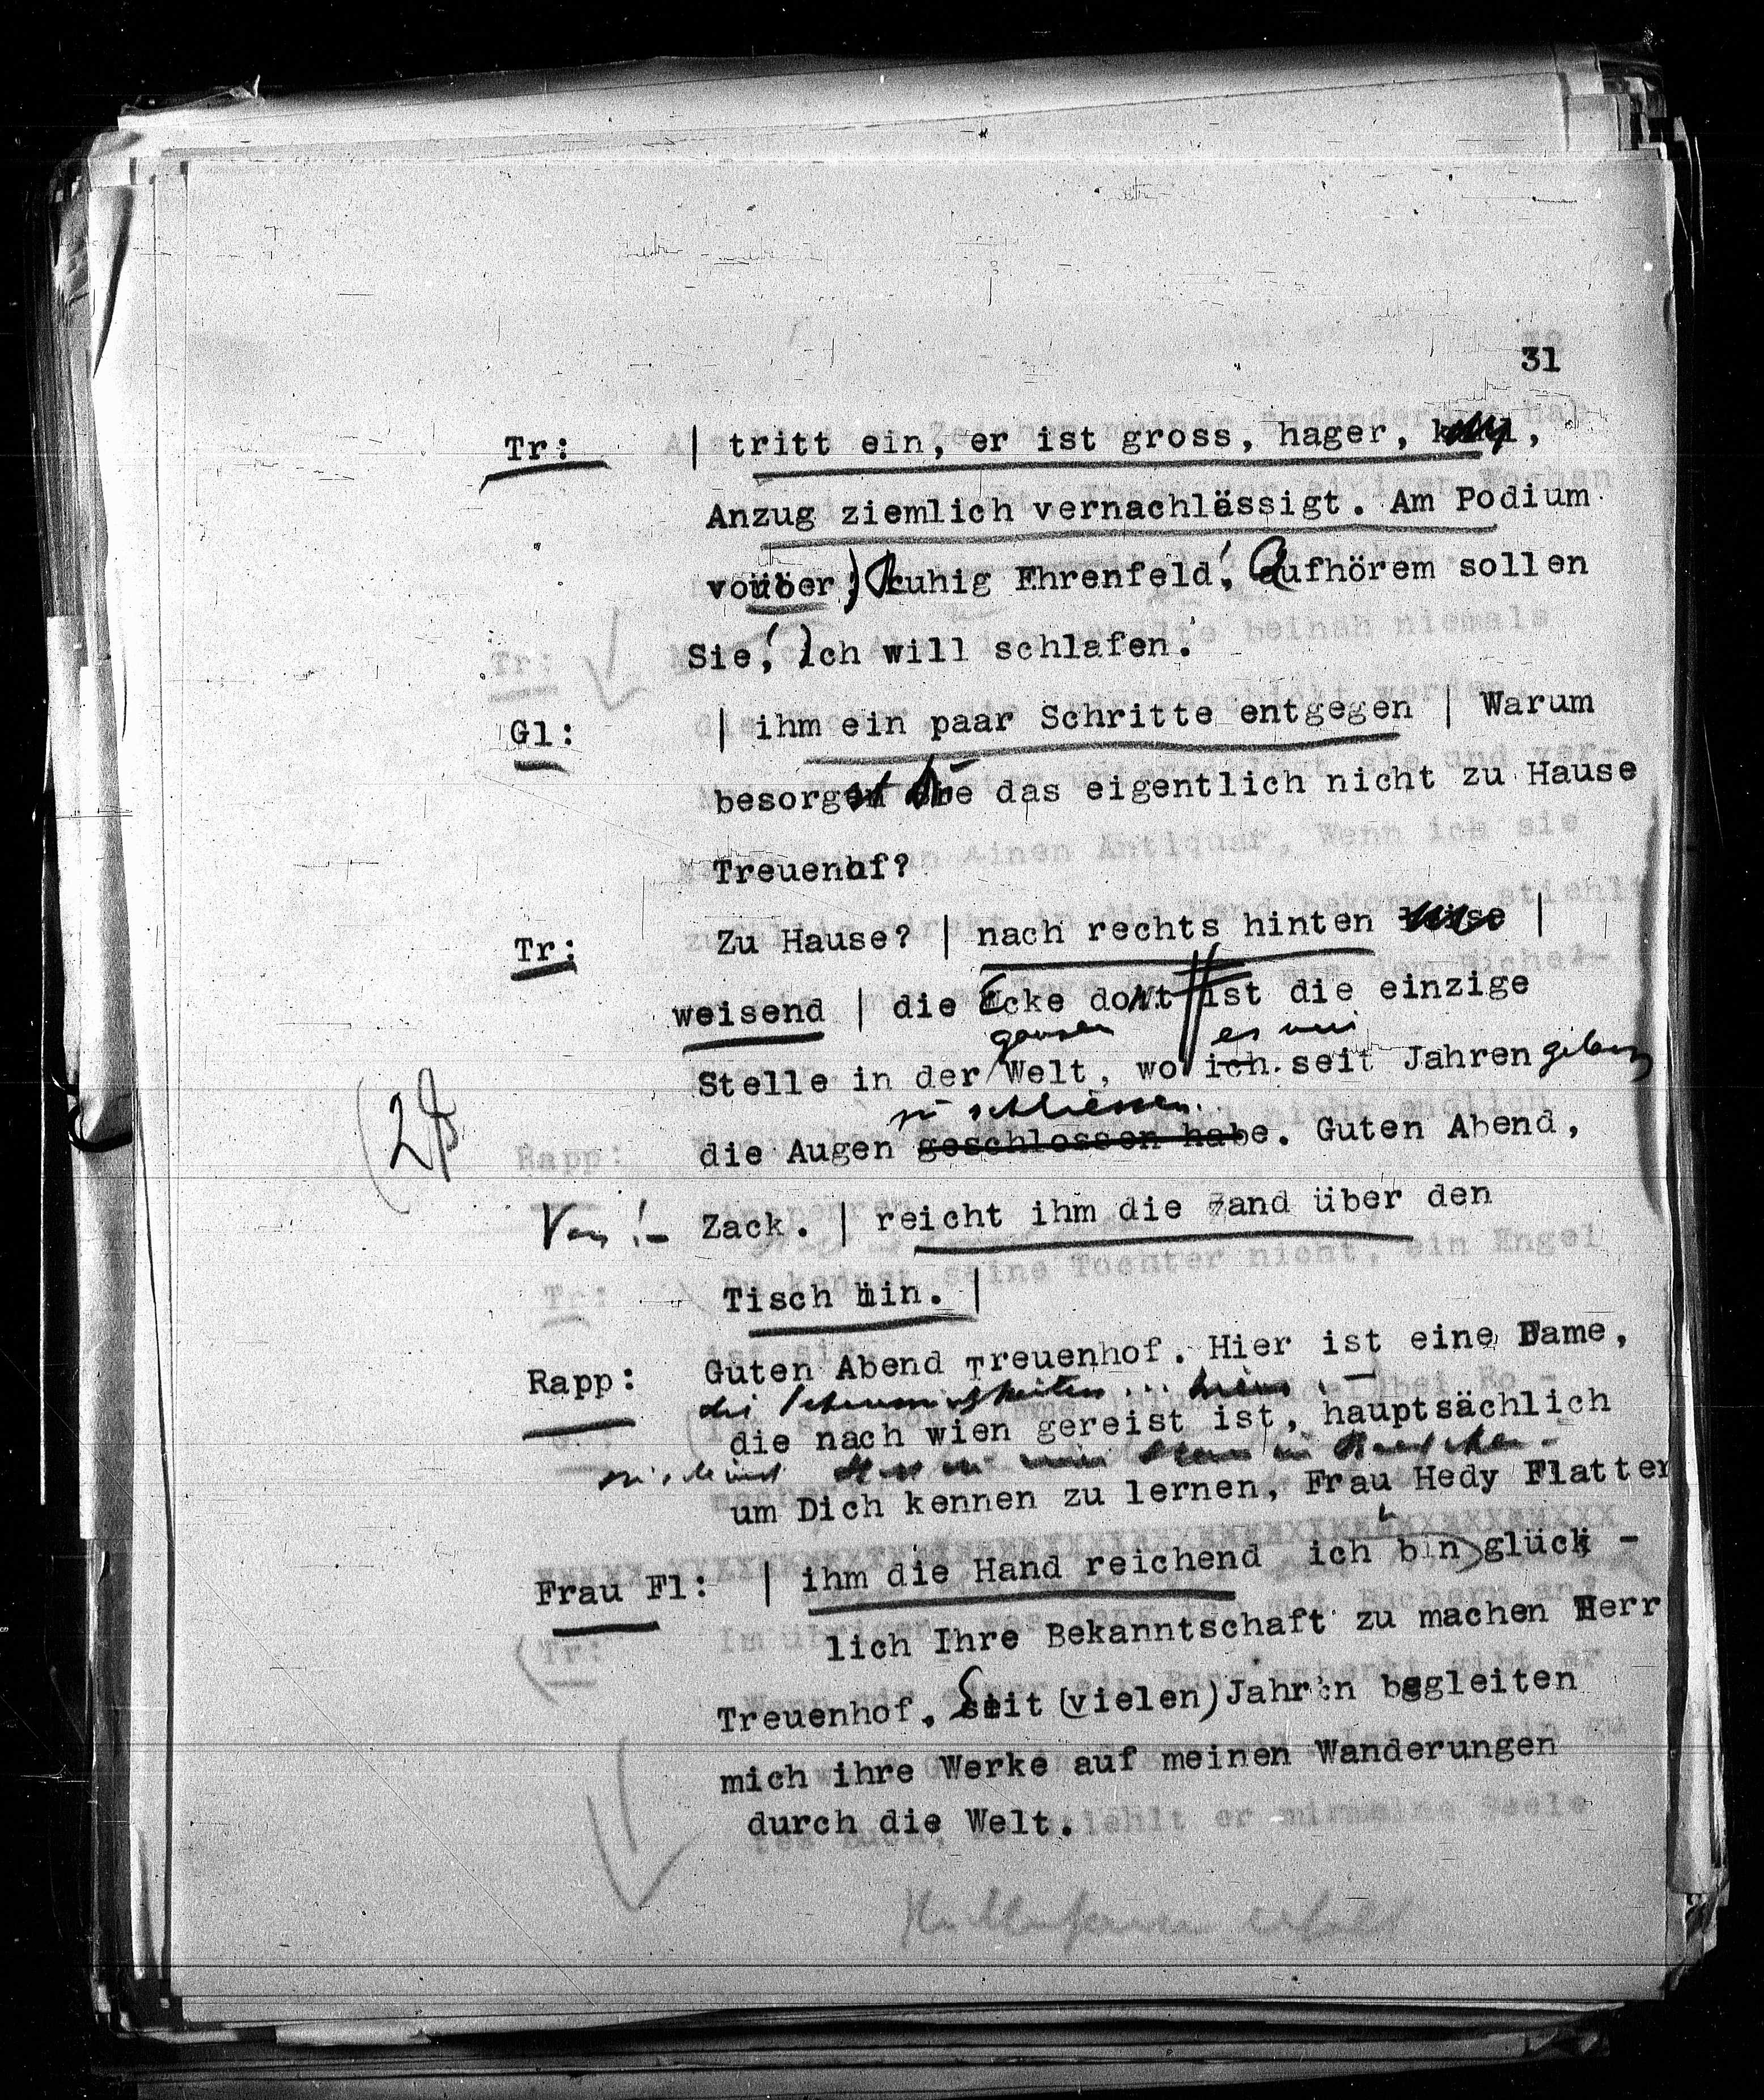 31
Tr: | tritt ein, er ist gross, hager,
Anzug ziemlich vernachlässigt. Am Podium
vorüber) Ruhig Ehrenfeld! Aufhörem sollen
Sie! Ich will schlafen.
Gl: | ihm ein paar Schritte entgegen | Warum
besorgst Du das eigentlich nicht zu Hause
Treuenhof?
Tr: Zu Hause? | nach rechts hinten |
weisend | die Ecke dort ist die einzige
ganzen es mir
Stelle in der Welt, wo ich seit Jahren gelang
zu schliessen.
die Augen geschlossen habe. Guten Abend,
Zack. | reicht ihm die Hand über den
Tisch hin. |
Rapp: Guten Abend Treuenhof. Hier ist eine Dame,
die nach wien gereist ist, hauptsächlich
um Dich kennen zu lernen, Frau Hedy Flatter
Frau Fl: | ihm die Hand reichend ich bin glück -
lich Ihre Bekanntschaft zu machen Herr
Treuenhof. Seit (vielen) Jahren begleiten
mich ihre Werke auf meinen Wanderungen
durch die Welt.